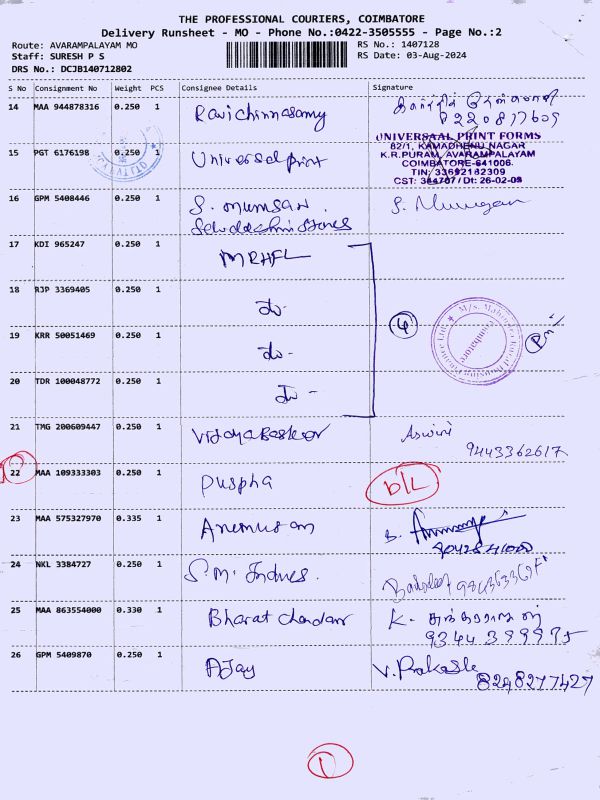 THE PROFESSIONAL COURIERS, COIMBATORE
Delivery Runsheet - MO - Phone No.:0422-3505555 - Page No.:2
Route: AVARAMPALAYAM MO
RS No.: 1407128
Staff: SURESH P S
RS Date: 03-Aug-2024
DRS No.: DCJB140712802
S No Consignment No Weight PCS Consignee Details Signature
14 MAA 944878316 0.250 1 Ravichinnasamy
UNIVERSAAL PRINT FORMS
82/1, KAMADHENU NAGAR
K.R.PURAM, AVARAMPALAYAM
COIMBATORE-641006.
TIN: 33692182309
CST: 364707 / Dt: 26-02-09
15 PGT 6176198 0.250 1 Universelprint
16 GPM 5408446 0.250 1 S. Mumsan. S. Murugan
17 KDI 965247 0.250 1 MRHFL
18 RJP 3369405 0.250 1 do-
4
19 KRR 50051469 0.250 1 do-
20 TDR 100048772 0.250 1 do-
21 TMG 200609447 0.250 1 Vijayabaskar Aswini
9443362617
22 MAA 109333303 0.250 1 Puspha D/L
23 MAA 575327970 0.335 1 B.
9042841000
24 NKL 3384727 0.250 1 S.M. Indues.
25 MAA 863554000 0.330 1 Bharat Chandar K.
9344399975
26 GPM 5409870 0.250 1 AJay V. Prakash
8248277427
1